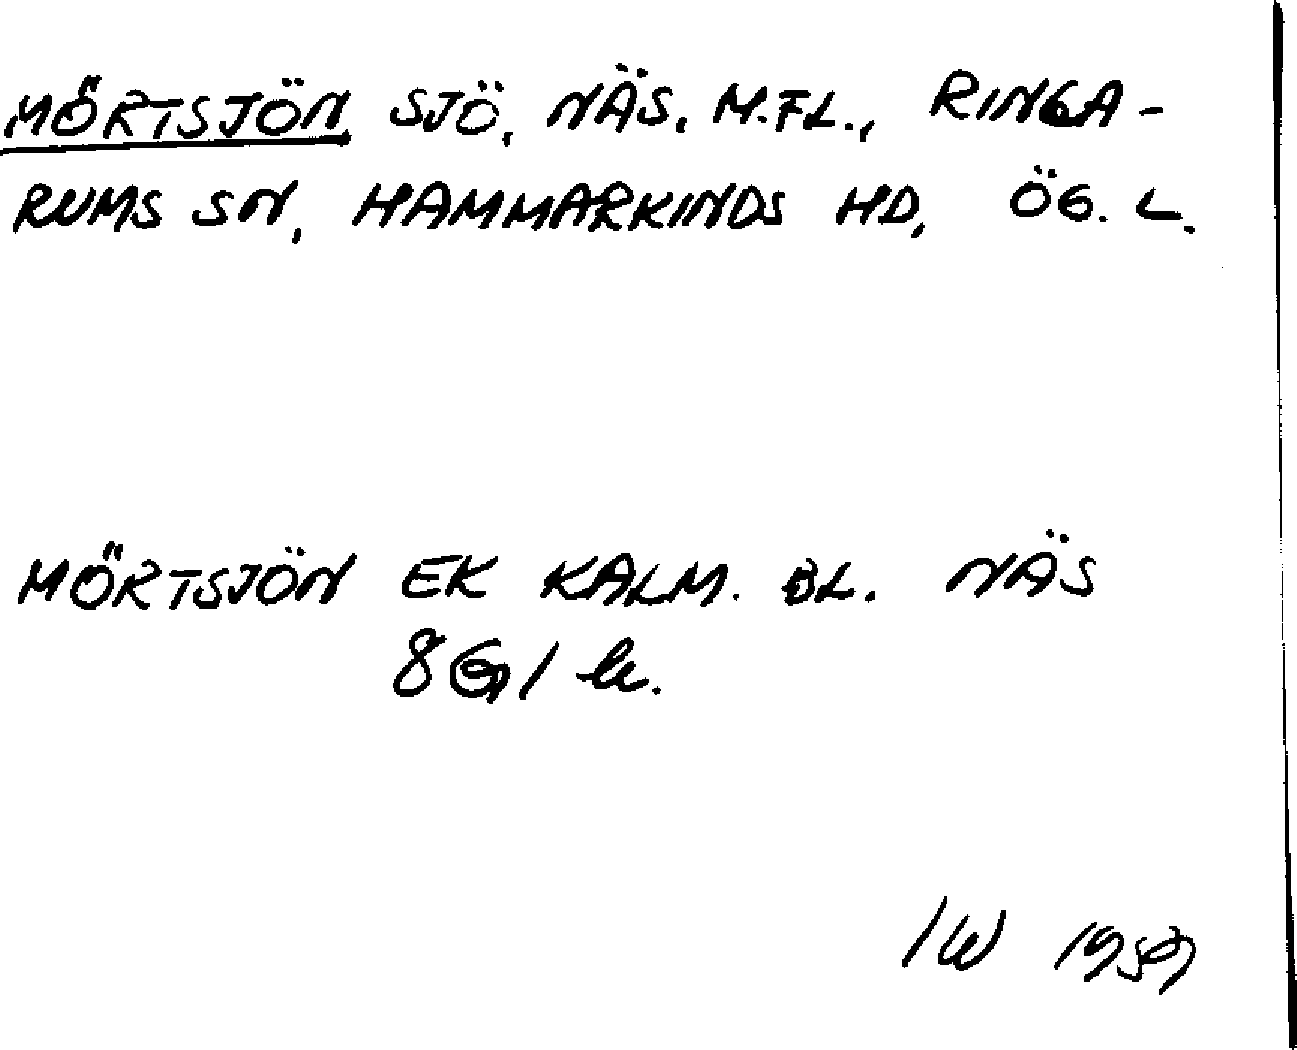 MÖRTSJÖN, SJÖ, NÄS, M.FL., RINGA-
RUMS SN, HAMMARKINDS HD, ÖG. L.
MÖRTSJÖN EK KALM. BL. NÄS
8G
IW 1959